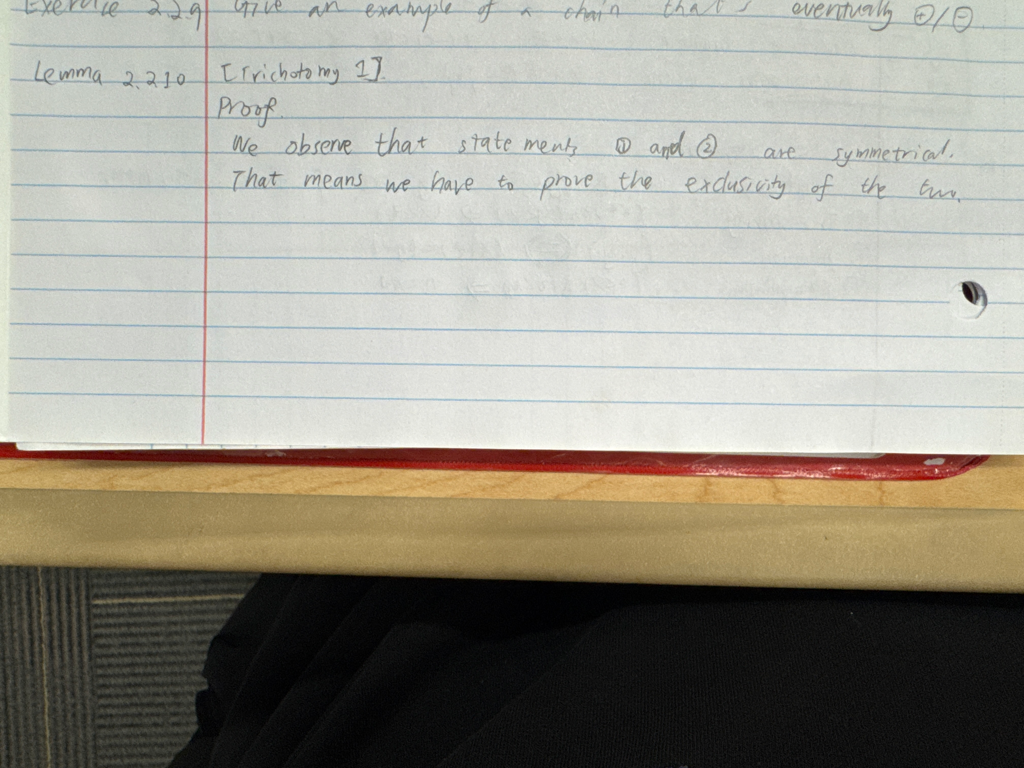 Exercise 2.2.9 Give an example of a chain that's eventually ⊕/⊖
Lemma 2.2.10 [Trichotomy 1].
Proof.
We observe that statements ① and ② are symmetrical.
That means we have to prove the exclusivity of the two.